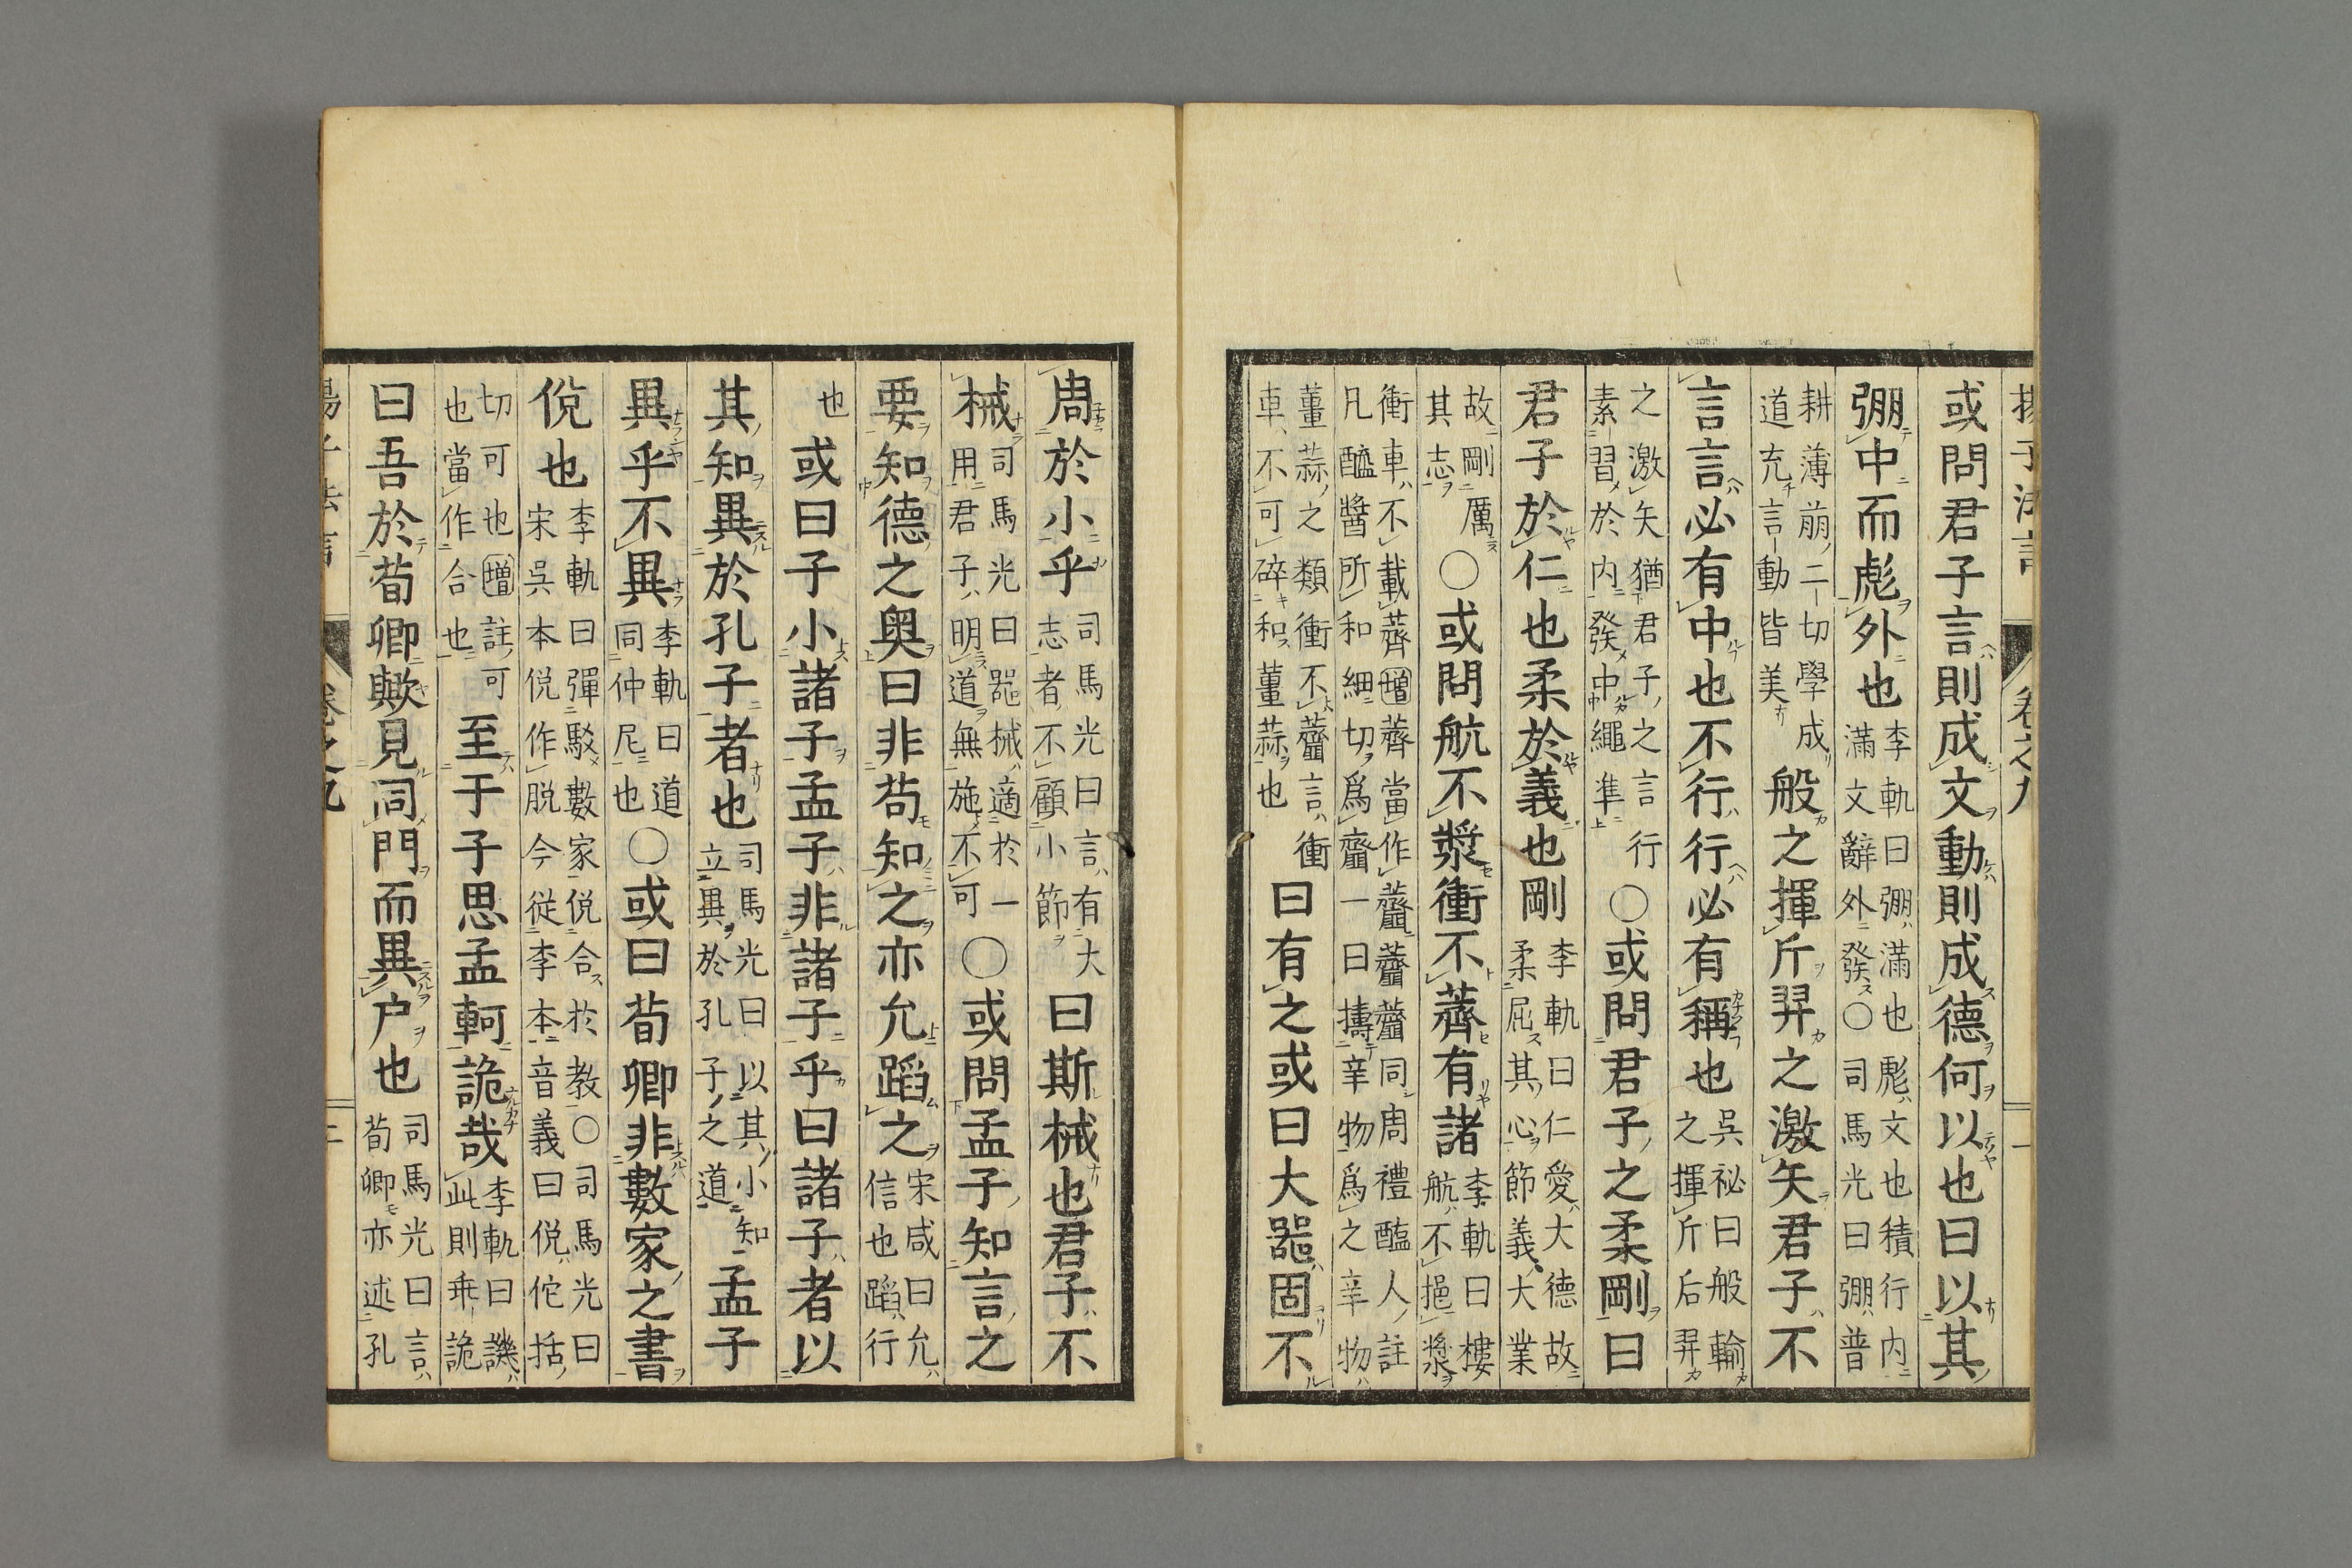 揚子法言 卷之九 一
或問君子言則成文動則成德何以也曰以其
弸中而彪外也李軌曰弸滿也彪文也積行内滿文辭外發○司馬光曰弸普
耕薄萠二切學成道充言動皆美般之揮斤羿之激矢君子不
言言必有中也不行行必有稱也吳祕曰般輸之揮斤后羿
之激矢猶君子之言行素習於内發中繩準○或問君子之柔剛曰
君子於仁也柔於義也剛李軌曰仁愛大德故柔屈其心節義大業
故剛厲其志○或問航不漿衝不薺有諸李軌曰樓航不挹漿
衝車不載薺增薺當作虀虀齏同周禮醢人註凡醯醬所和細切爲齏一曰擣辛物爲之辛物
薑蒜之類衝不虀言衝車不可碎和薑蒜也曰有之或曰大器固不
周於小乎司馬光曰言有大志者不顧小節曰斯械也君子不
械司馬光曰器械適於一用君子明道無施不可○或問孟子知言之
要知德之奥曰非苟知之亦允蹈之宋咸曰允信也蹈行
也或曰子小諸子孟子非諸子乎曰諸子者以
其知異於孔子者也司馬光曰以其小知立異於孔子之道孟子
異乎不異李軌曰道同仲尼也○或曰荀卿非數家之書
侻也李軌曰彈駁數家侻合於教○司馬光曰宋吳本侻作脱今從李本音義曰侻佗括
切可也增註可也當作合也至于子思孟軻詭哉李軌曰譏此則乖詭
曰吾於荀卿歟見同門而異户也司馬光曰言荀卿亦述孔
揚子法言 卷之九